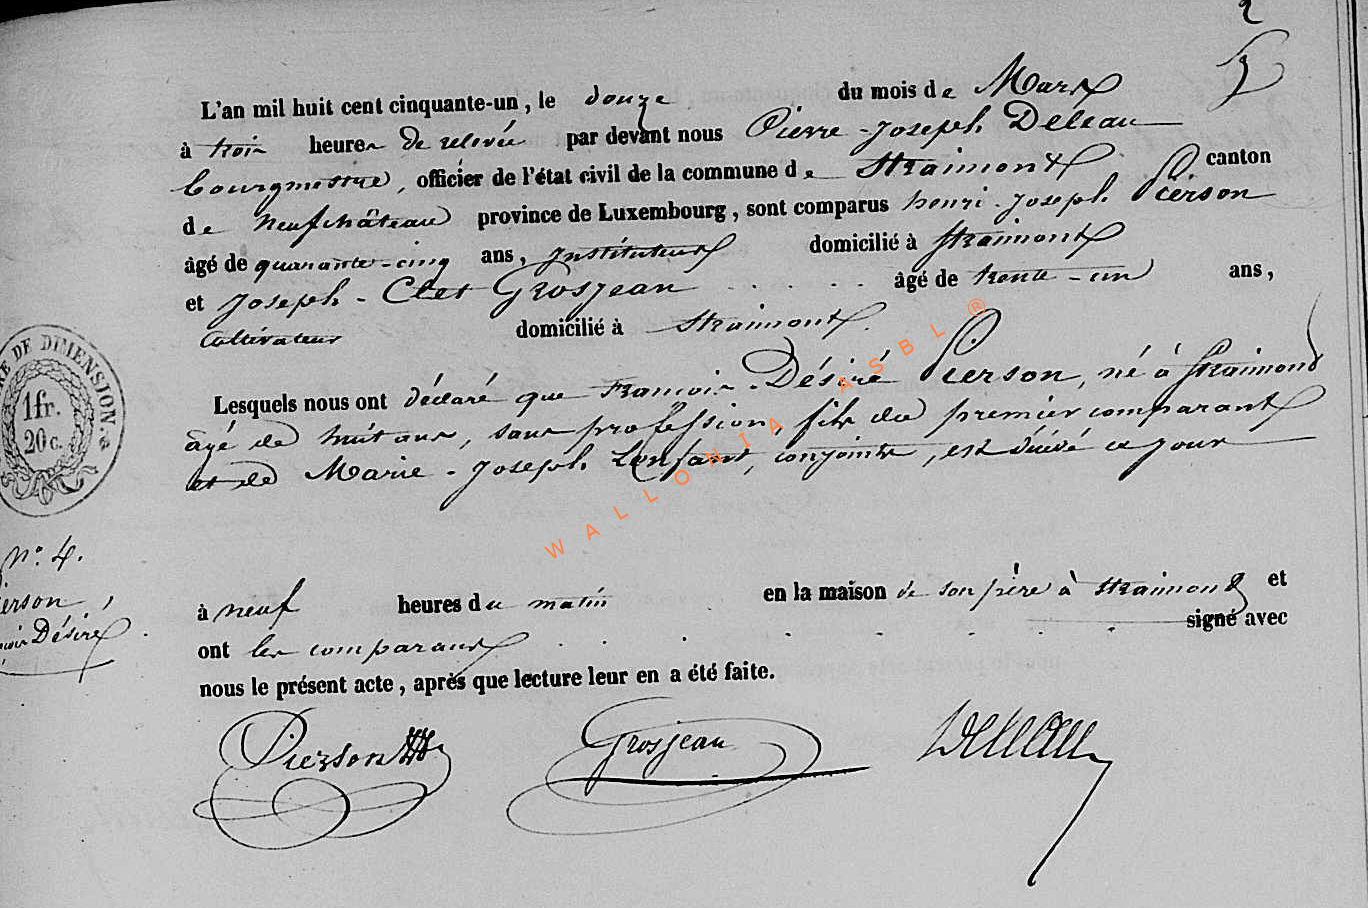 2
3
L'an mil huit cent cinquante-un, le douze du mois de Mars
à trois heures de relevée par devant nous Pierre-Joseph Deleau
bourgmestre, officier de l'état civil de la commune de Straimont canton
de Neufchâteau province de Luxembourg, sont comparus henri-Joseph Pierson
âgé de quarante-cinq ans, Instituteur domicilié à Straimont
et Joseph-Clet Grosjean . . . . . âgé de trente-un ans,
Cultivateur domicilié à Straimont.
Lesquels nous ont déclaré que François-Désiré Pierson, né à Straimont
âgé de huit ans, sans profession, fils du premier comparant
et de Marie-Joseph Lenfant, conjoints, est décédé ce jour
à neuf heures du matin en la maison de son père à Straimont et
ont les comparants . . . . . . signé avec
nous le présent acte, après que lecture leur en a été faite.
Pierson HH Grosjean Deleau
RE DE DIMENSION.
1fr.
20 c.
N° 4.
ierson,
çois Désiré.
WALLONIA ASBL ®